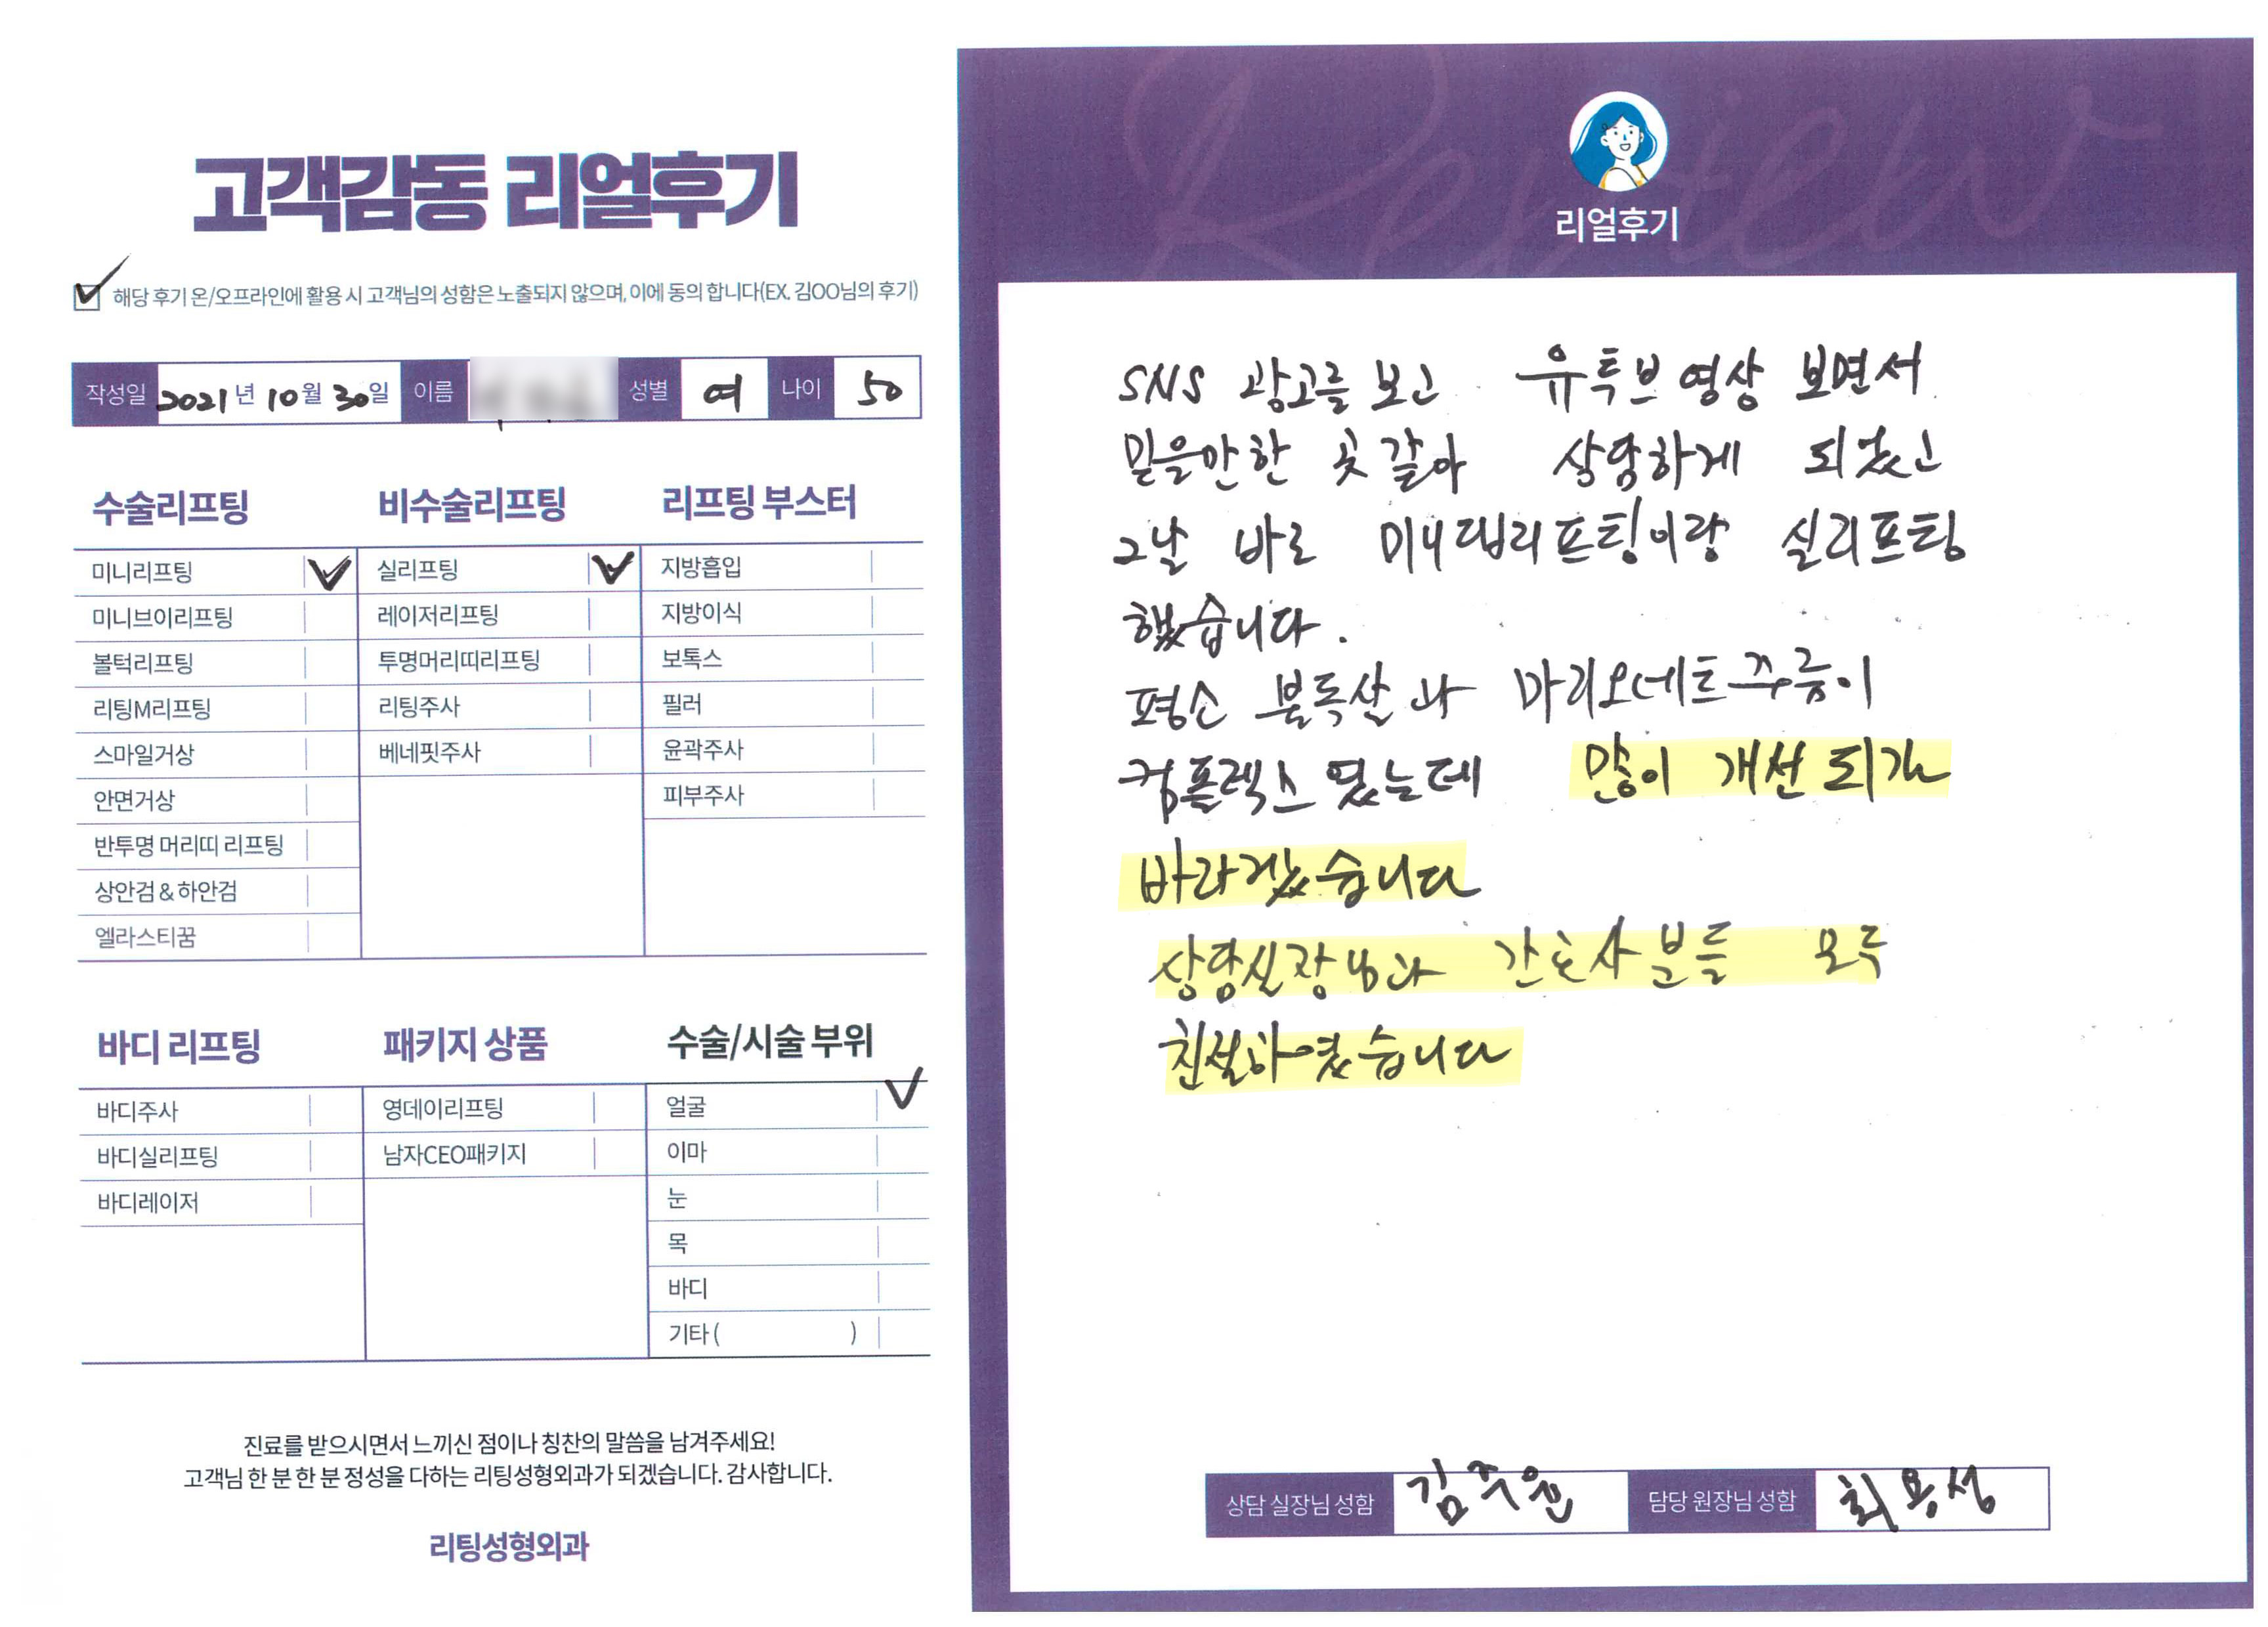 고객감동 리얼후기
해당 후기 온/오프라인에 활용 시 고객님의 성함은 노출되지 않으며, 이에 동의 합니다(EX. 김OO님의 후기)
작성일 2021년 10월 30일 이름 성별 여 나이 50
수술리프팅
미니리프팅
미니브이리프팅
볼턱리프팅
리팅M리프팅
스마일거상
안면거상
반투명 머리띠 리프팅
상안검 & 하안검
엘라스티꿈
비수술리프팅
실리프팅
레이저리프팅
투명머리띠리프팅
리팅주사
베네핏주사
리프팅 부스터
지방흡입
지방이식
보톡스
필러
윤곽주사
피부주사
바디 리프팅
바디주사
바디실리프팅
바디레이저
패키지 상품
영데이리프팅
남자CEO패키지
수술/시술 부위
얼굴
이마
눈
목
바디
기타 ( )
진료를 받으시면서 느끼신 점이나 칭찬의 말씀을 남겨주세요!
고객님 한 분 한 분 정성을 다하는 리팅성형외과가 되겠습니다. 감사합니다.
리팅성형외과
Review
리얼후기
SNS 광고를 보고 유투브 영상 보면서
믿을만한 곳 같아 상담하게 되었고
그날 바로 미니딥리프팅이랑 실리프팅
했습니다.
평소 불독살과 마리오네트주름이
컴플렉스 였는데 많이 개선되길
바라겠습니다
상담실장님과 간호사분들 모두
친절하였습니다
상담 실장님 성함 김주윤 담당 원장님 성함 최용성